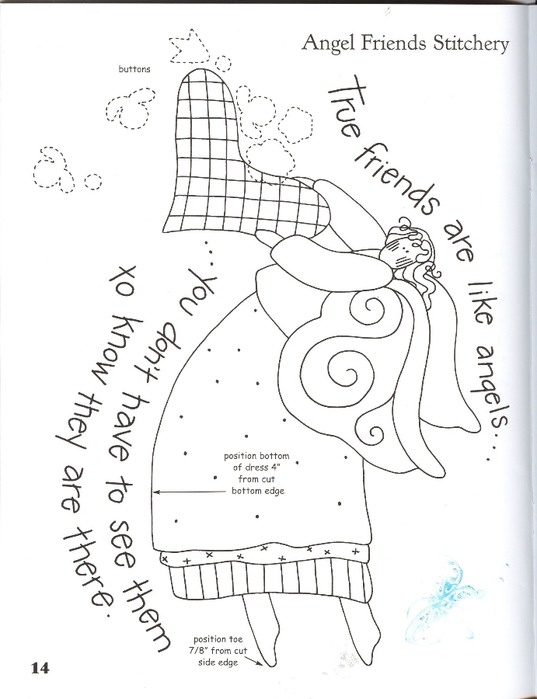 Angel Friends Stitchery
buttons
True friends are like angels...
...You don't have to see them
xo know they are there.
position bottom
of dress 4"
from cut
bottom edge
position toe
7/8" from cut
side edge
14